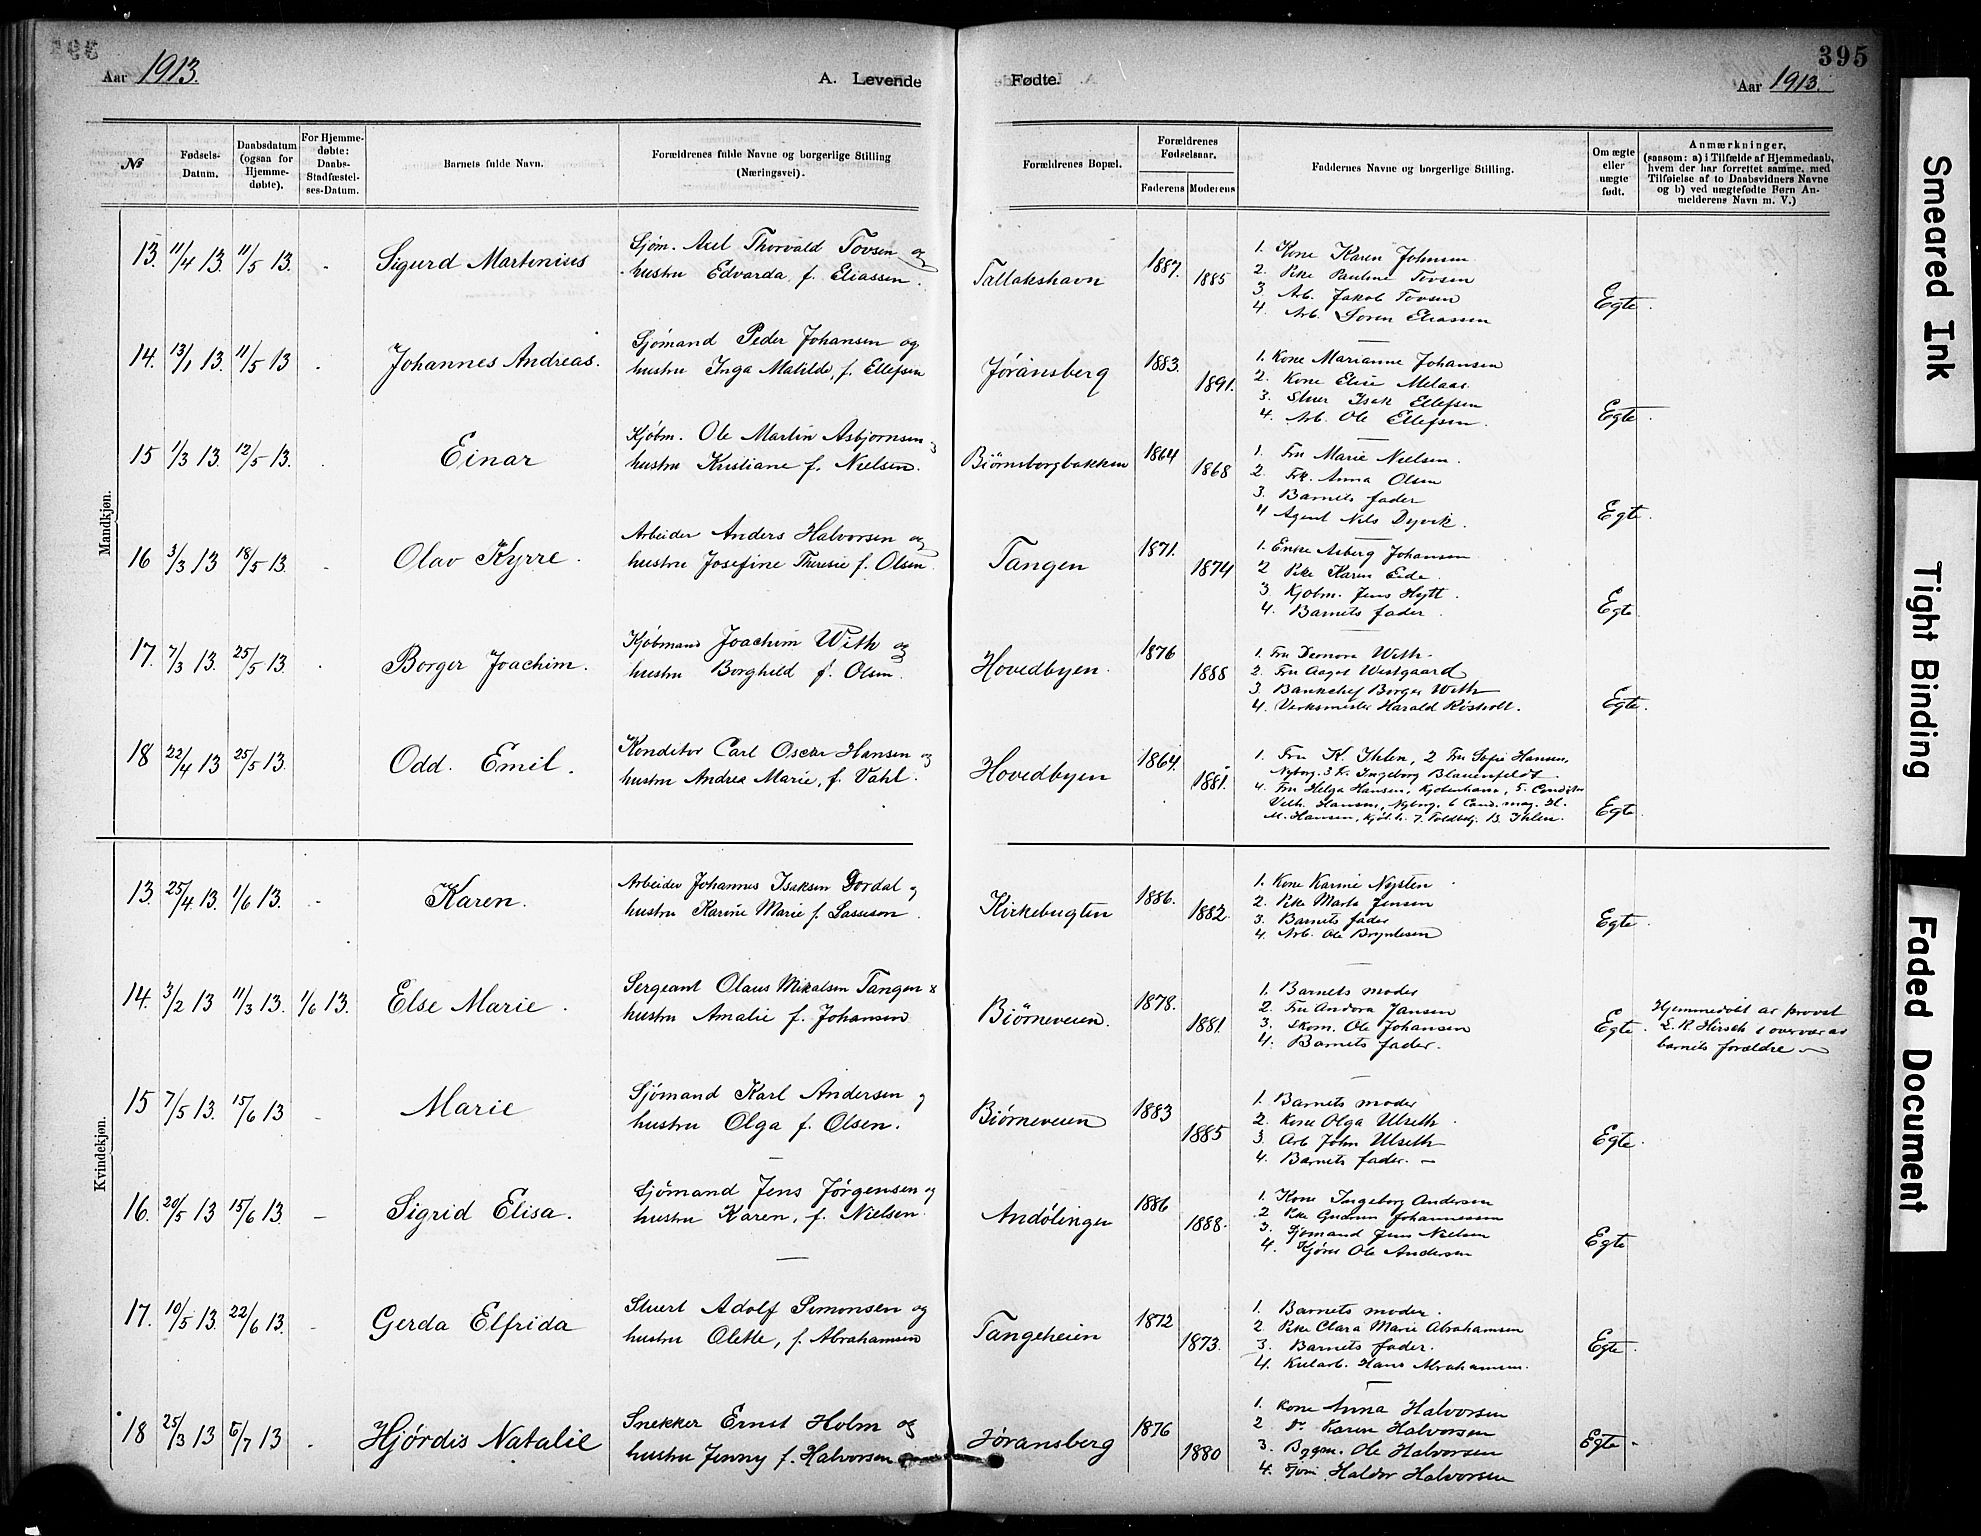 395
Aar 1913.
A. Levende Fødte.
Aar 1913.
№
Fødsels-Datum.
Daabsdatum (ogsaa for Hjemme-døbte).
For Hjemme-døbte: Daabs-Stadfæstel-ses-Datum.
Barnets fulde Navn.
Forældrenes fulde Navne og borgerlige Stilling (Næringsvei).
Forældrenes Bopæl.
Forældrenes Fødselsaar.
Faderens Moderens
Faddernes Navne og borgerlige Stilling.
Om ægte eller uægte født.
Anmærkninger, (saasom: a) i Tilfælde af Hjemmedaab, hvem der har forrettet samme, med Tilføielse af to Daabsvidners Navne og b) ved uægtefødte Børn An-melderens Navn m. V.)
Mandkjøn.
13. 11/4 13. 11/5 13. - Sigurd Martinius
Sjøm. Axel Thorvald Tovsen og
hustru Edvarda, f. Eliassen.
Tallakshavn 1887. 1885
1. Kone Karen Johnsen
2. Pike Pauline Tovsen
3. Arb. Jakob Tovsen
4. Arb. Soren Eliassen
Egte.
14. 13/1 13. 11/5 13 . Johannes Andreas.
Sjømand Peder Johansen og
hustru Inga Matilde, f. Ellefsen
Jøransberg 1883. 1891.
1. Kone Marianne Johansen
2. Kone Elise Melaas
3. Stuer Isak Ellefsen
4. Arb. Ole Ellefsen.
Egte.
15 1/3 13. 12/5 13. . Einar
Kjøbm. Ole Martin Asbjornsen og
hustru Kristiane f. Nielsen.
Biørnsborgbakken 1864 1868
1. Fru Marie Nielsen.
2. Frk. Anna Olsen
3. Barnets fader
4 Agent Nils Dyvik.
Egte.
16 3/3 13 18/5 13. - Olav Kyrre.
Arbeider Anders Halvorsen og
hustru Josefine Theresie f. Olsen.
Tangen 1871. 1874
1. Enke Asberg Johansen
2 Pike Karen Eide.
3 Kjobm. Jens Hytt.
4. Barnets fader.
Egte
17. 7/3 13. 25/5 13 . Borger Joachim.
Kjøbmand Joachim With og
hustru Borghild f. Olsen.
Hovedbyen. 1876 1888
1. Fru Leonora With.
2. Fru Aagot Westgaard
3. Bankchef Borger With
4. Verksmester Harald Risholt.
Egte.
18 22/4 13 25/5 13. Odd. Emil.
Konditor Carl Oscar Hansen og
hustru Andrea Marie, f. Vahl.
Hovedbyen 1864. 1881.
1. Fru K. Ihlen, 2 Fru Sofie Hansen,
Nyborg. 3 Fr. Ingeborg Blauenfeldt.
4. Fru Helga Hansen, Kjøbenhavn, 5. Conditor
Vilh. Hansen, Nyborg. 6 Cand. mag. H.
M. Hansen, Kjøbh. 7. Toldbetj. B. Ihlen.
Egte
Kvindekjøn.
13. 25/4 13. 1/6 13. - Karen.
Arbeider Johannes Isaksen Dordal og
hustru Karine Marie f. Sasseson
Kirkebugten 1886. 1882.
1. Kone Karine Nysten
2. Pike Marta Jensen
3. Barnets fader
4. Arb. Ole Bryntesen
Egte.
14. 3/2 13 11/3 13. 1/6 13. Else Marie.
Sergeant Olaus Mikalsen Tangen &
hustru Amalie f. Johansen
Biørneveien. 1878. 1881.
1. Barnets moder
2. Fru Andora Jansen
3. Skom. Ole Johansen
4. Barnets fader.
Egte.
Hjemmedøbt av provst
E. R. Hirsch i overvær av
barnets forældre
15 7/5 13. 15/6 13 - Marie
Sjømand Karl Andersen og
hustru Olga f. Olsen.
Biørneveien 1883 1885
1. Barnets moder
2. Kone Olga Ulseth
3. Arb John Ulseth
4. Barnets fader.
Egte.
16. 20/5 13 15/6 13. - Sigrid Elisa.
Sjömand Jens Jørgensen og
hustru Karen, f. Nielsen
Andölingen 1886 1888.
1. Kone Ingeborg Andersen
2 Pike Gudrun Johannessen
3. Sjømand Jens Nielsen
4. Kjøre Ole Andersen
Egte
17. 10/5 13. 22/6 13. - Gerda Elfrida
Stuert Adolf Simonsen og
hustru Olette, f. Abrahamsen
Tangeheien 1872 1873.
1. Barnets moder.
2. Pike Clara Marie Abrahamsen
3. Barnets fader.
4. Kularb. Hans Abrahamsen.
Egte.
18 25/3 13 6/7 13 . Hjørdis Natalie
Snekker Ernst Holm og
hustru Jenny f. Halvorsen
Jøransberg 1876 1880
1. Kone Anna Halvorsen
2 Do Karen Halvorsen
3. Bygm. Ole Halvorsen
4. Tjøm. Haldor Halvorsen
Egte.
Smeared Ink
Tight Binding
Faded Document